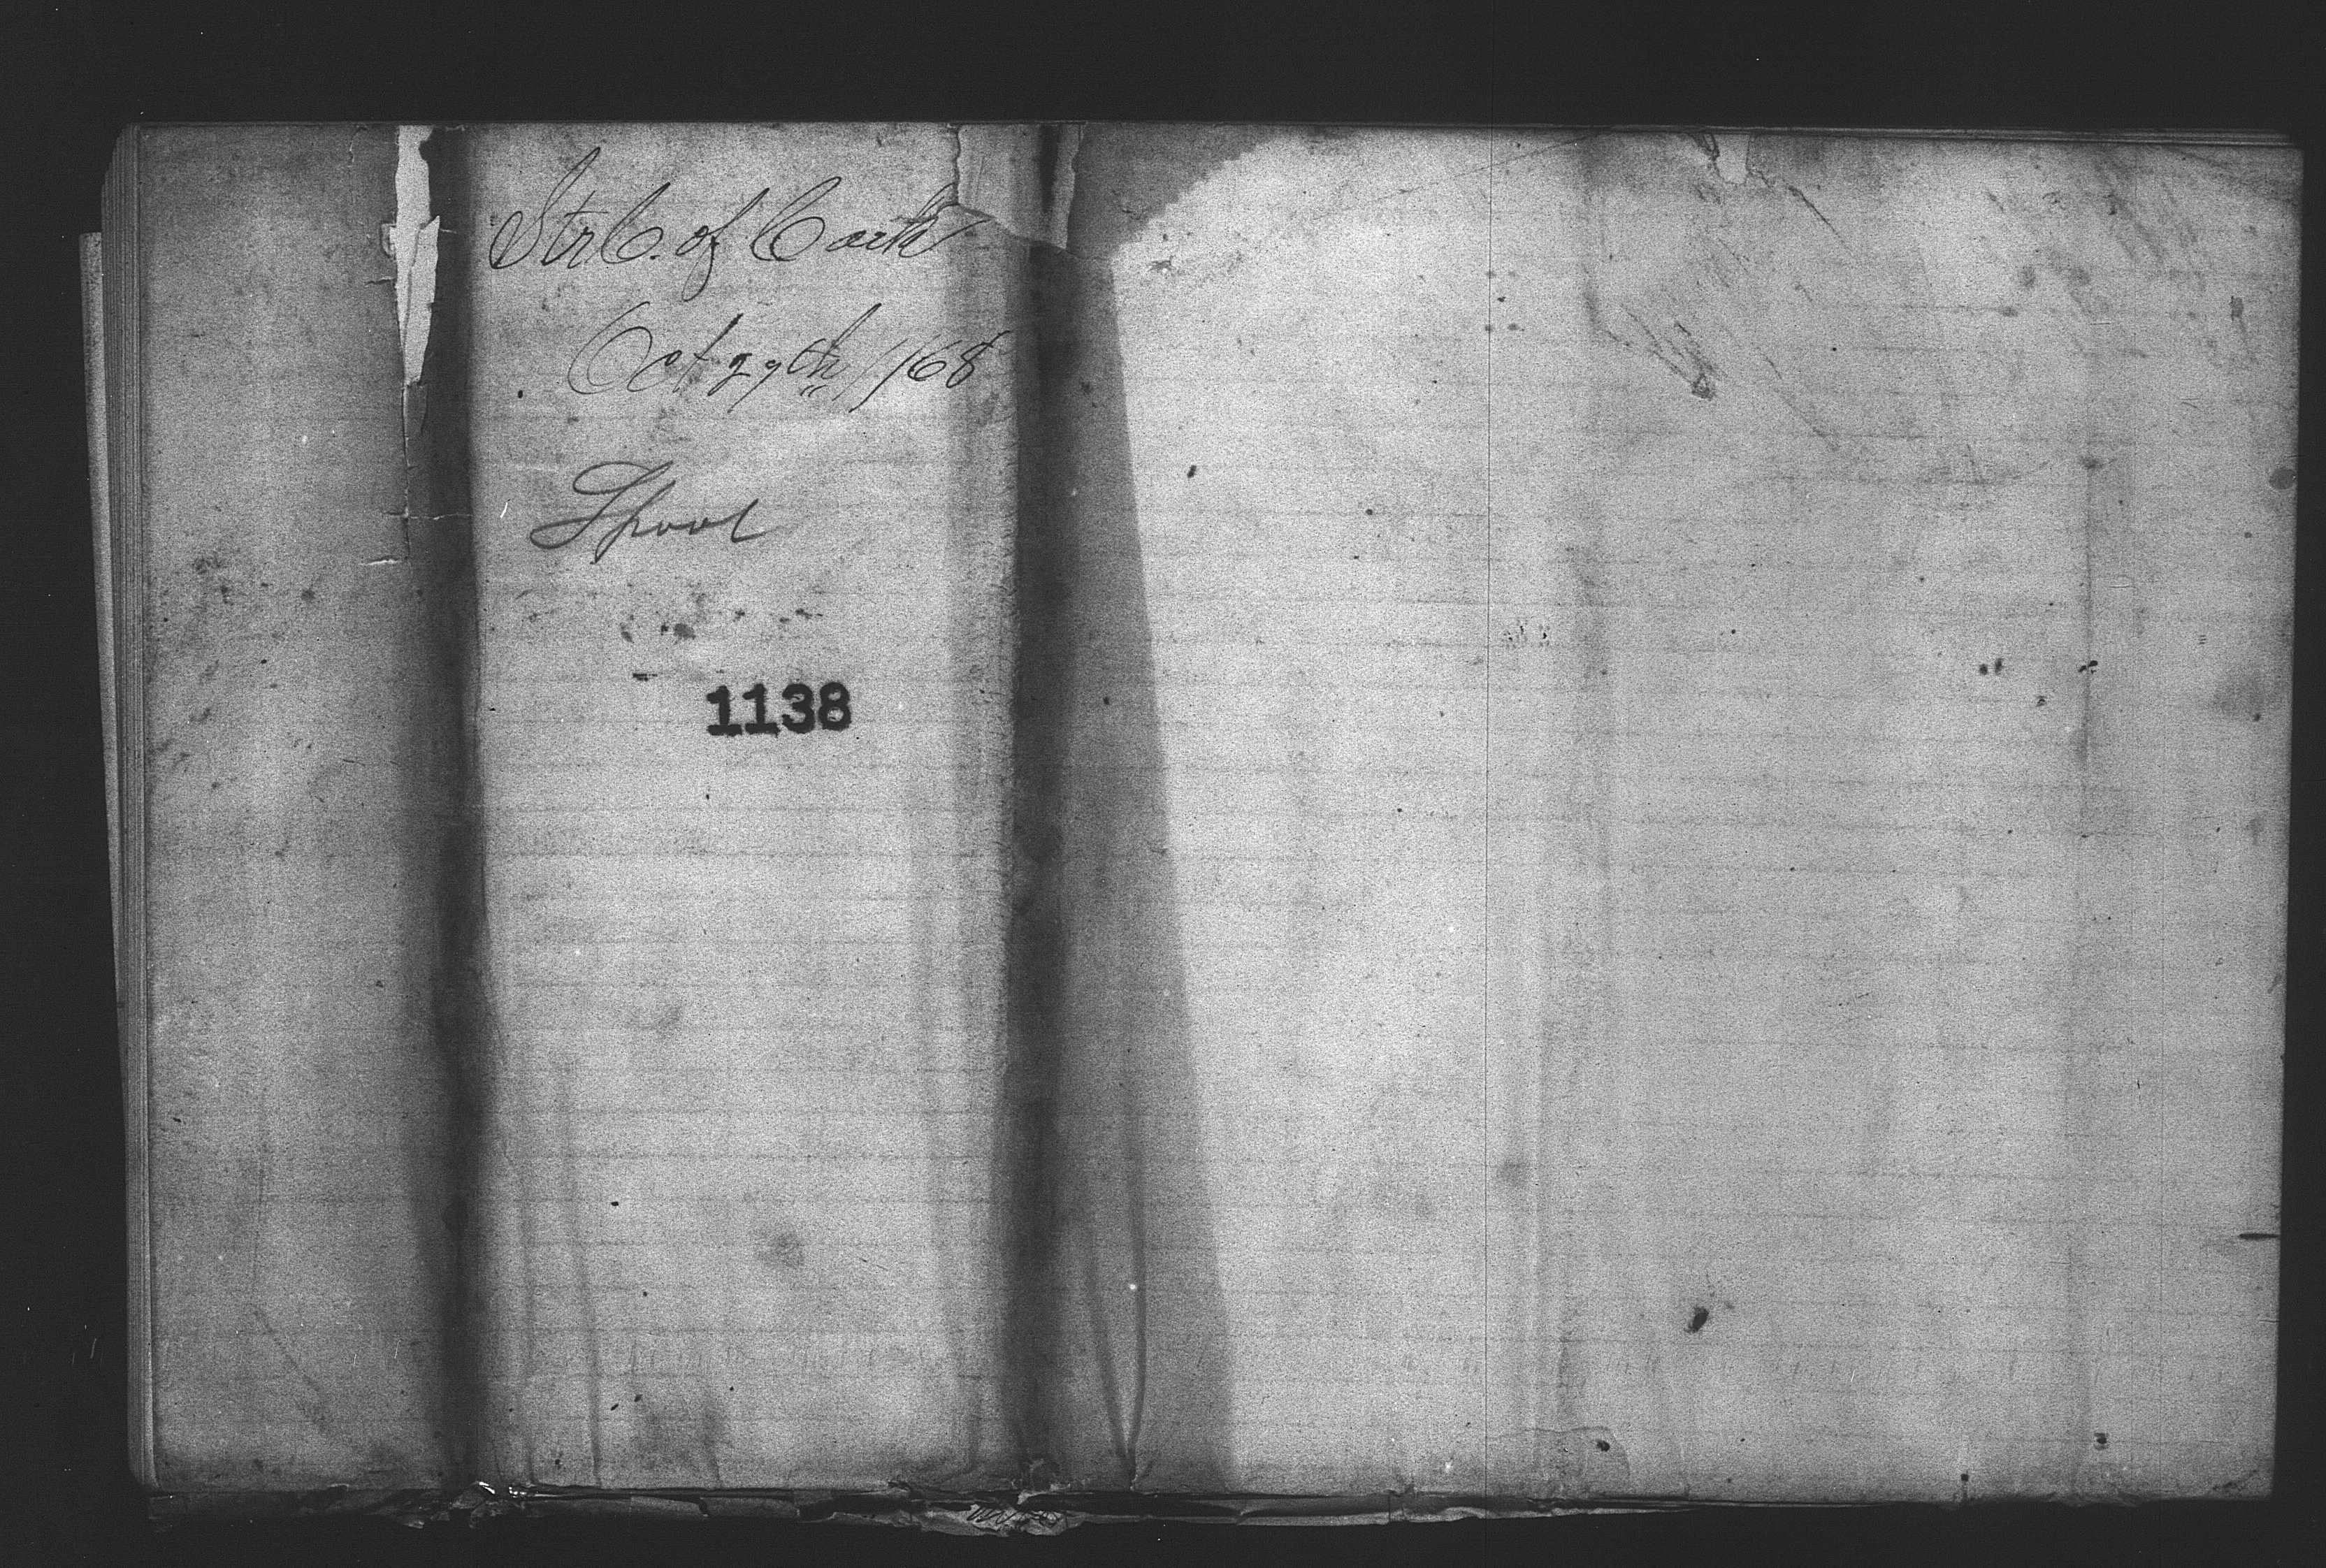 Str C. of Cork
Oct 29th /168
Lpool
1138